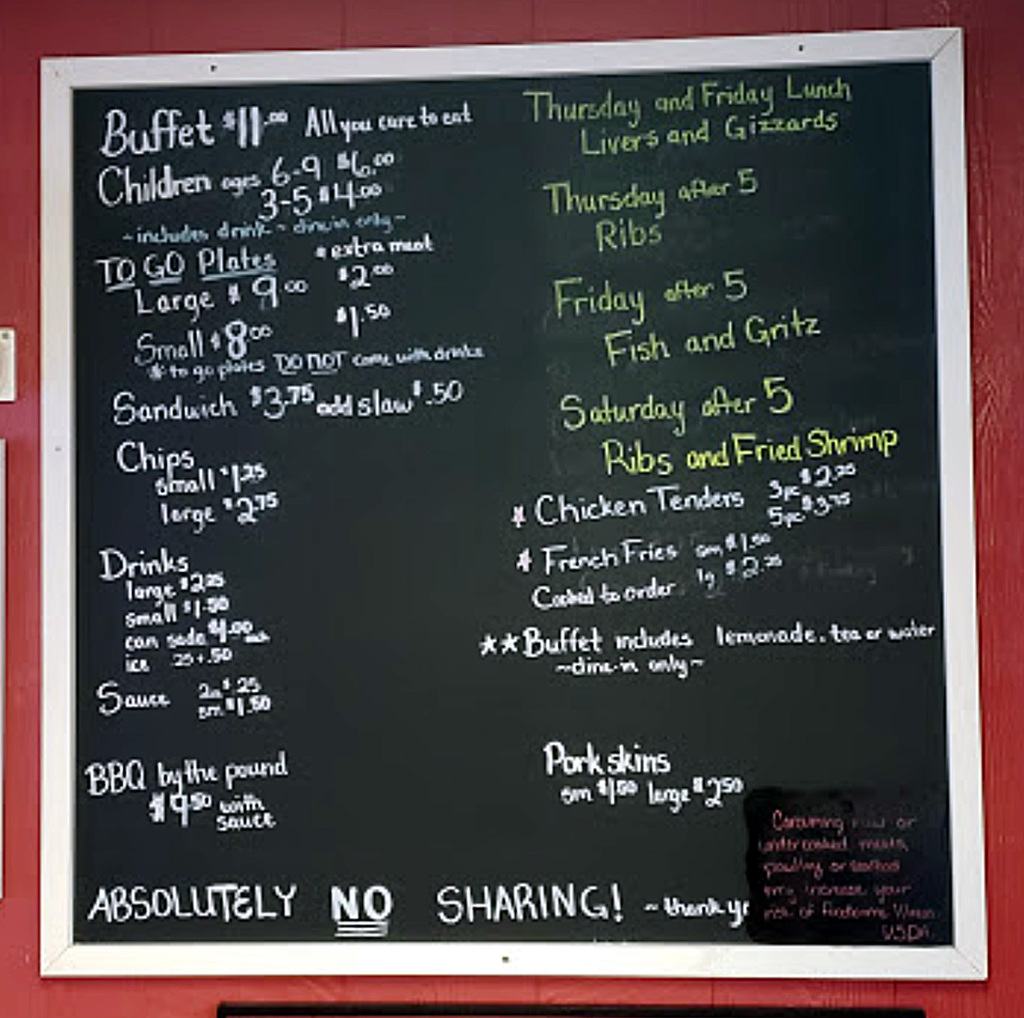 Buffet $11.00 All you care to eat
Children ages 6-9 $6.00
3-5 $4.00
~includes drink~ dine in only~
TO GO Plates * extra meat
Large $9.00 $2.00
Small $8.00 $1.50
* to go plates DO NOT come with drinks
Sandwich $3.75 add slaw $.50
Chips
small $1.25
large $2.75
Drinks
large $2.25
small $1.50
can soda $1.00 each
ice .25 + .50
Sauce $.25
sm $1.50
BBQ by the pound
$9.50 with
sauce
Thursday and Friday Lunch
Livers and Gizzards
Thursday after 5
Ribs
Friday after 5
Fish and Gritz
Saturday after 5
Ribs and Fried Shrimp
* Chicken Tenders 3pc $2.25
5pc $3.75
* French Fries sm $1.50
Cooked to order lg $2.25
** Buffet includes lemonade, tea or water
~dine-in only~
Pork skins
sm $1.50 large $2.50
ABSOLUTELY NO SHARING! ~thank y
Consuming raw or
undercooked meats,
poultry or seafood
may increase your
risk of foodborne illness
USDA